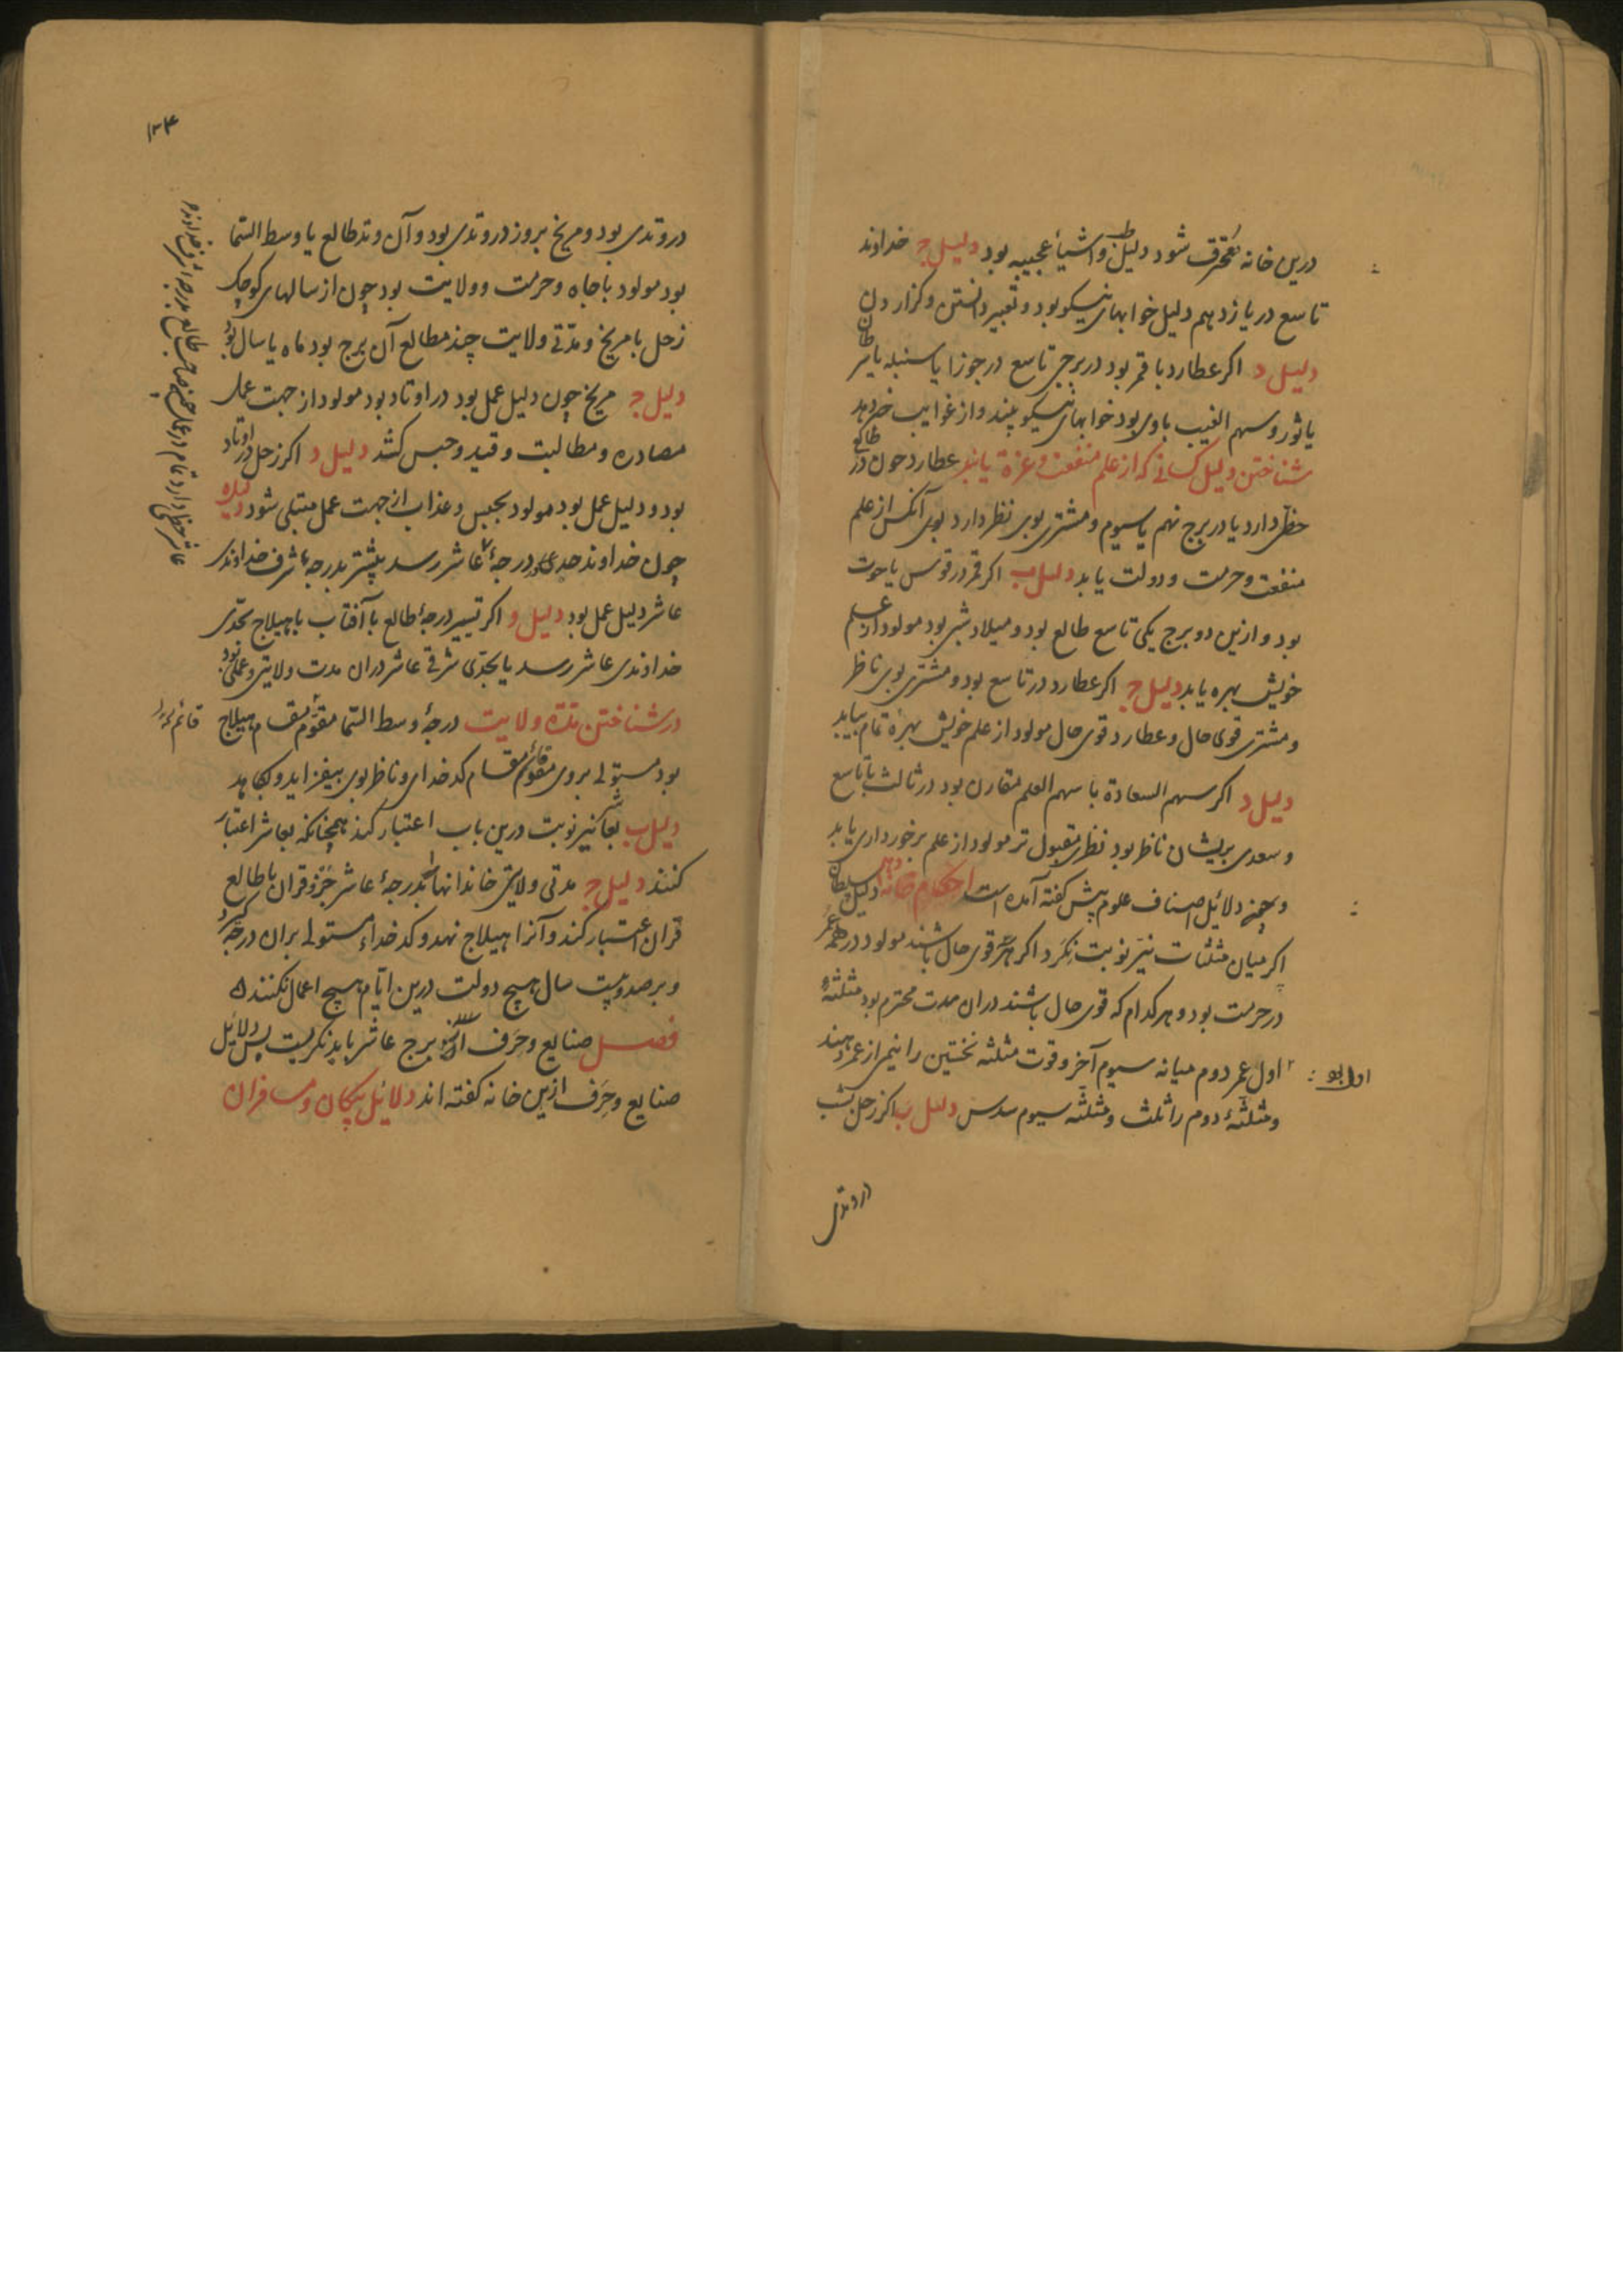 درین خانه محترق شود دلیل ظن واشیاء عجیبه بود دلیل ج خداوند
تاسع در یازدهم دلیل خوابهای نیکو بود وتعبیر دانستن وکزاردن
دلیل د اکر عطارد با قمر بود در برج تاسع در جوزا یا سنبله یا سرطان
یا ثور وسهم الغیب باوی بود خوابهای نیکو بیند واز غوایب خبر دهد
شناختن دلیل کسانی که از علم منفعت وعزة یابند عطارد چون در طالع
حظی دارد یا در برج نهم یا سیوم ومشتری بوی نظر دارد بوی آنکس از علم
منفعت وحرمت ودولت یابد دلیل ب اکر قمر در قوس یا حوت
بود وازین دو برج یکی تاسع طالع بود ومیلاد شبی بود مولود از علم
خویش بهره یابد دلیل ج اکر عطارد در تاسع بود ومشتری بوی ناظر
ومشتری قوی حال وعطارد قوی حال مولود از علم خویش بهرهٔ تمام بیابد
دلیل د اکر سهم السعادة با سهم العلم مقارن بود در ثالث یا تاسع
وسعدی بریشان ناظر بود نظری مقبول تر مولود از علم برخورداری یابد
دلائل اصناف علوم پیش کفته آمده است احکام خانه دهم دلیل سلطان
اکر میان مثلثات نیر نوبت نکرد اکر هر سه قوی حال باشند مولود در همه عمر
در حرمت بود وهر کدام که قوی حال باشند دران مدت محترم بود مثلثه
اول عمر دوم میانه سیوم آخر وقوت مثلثه نخستین را نیمی از عمر دهند
ومثلثهٔ دوم را ثلث ومثلثه سیوم سدس دلیل ب اکر زحل بشب
در وتدی
۱۳۴
در وتدی بود ومریخ بروز در وتدی بود وآن وتد طالع یا وسط السما
بود مولود با جاه وحرمت وولایت بود چون از سالهای کوچک
زحل با مریخ ومدتی ولایت چند مطالع آن برج بود ماه یا سال بود
دلیل ج مریخ چون دلیل عمل بود در اوتاد بود مولود از جهت عمل
مصادره ومطالبت وقید وحبس کشد دلیل د اکر زحل در اوتاد
بود ودلیل عمل بود مولود بحبس وعذاب از جهت عمل مبتلی شود دلیل ه
چون خداوند حدی درجهٔ عاشر رسد پیشتر بدرجه شرف خداوندی
عاشر دلیل عمل بود دلیل و اکر تسییر درجهٔ طالع با آفتاب یا هیلاج بحدی
خداوندی عاشر رسد یا بحدی شرفی عاشر دران مدت ولایتی وعملی بود
در شناختن مدة ولایت درجهٔ وسط السما مقام هیلاج
بود مستولی بروی مقام کدخدای وناظر بوی بیفزاید وبکاهد
دلیل ب نیر نوبت درین باب اعتبار کنند همچنانکه بعاشر اعتبار
کنند دلیل ج مدتی ولایتی خاندانها بدرجهٔ عاشر جزو قران یا طالع
قران اعتبار کنند وآنرا هیلاج نهند وکدخداء مستولی بران درجه کیرد
وبر صد وبیست سال هیچ دولت درین ایام هیچ اعمال نکنند
فصل صنایع وحرف از برج عاشر باید نکریست پس دلائل
صنایع وحرف ازین خانه کفته اند دلائل پیکان ومسافران